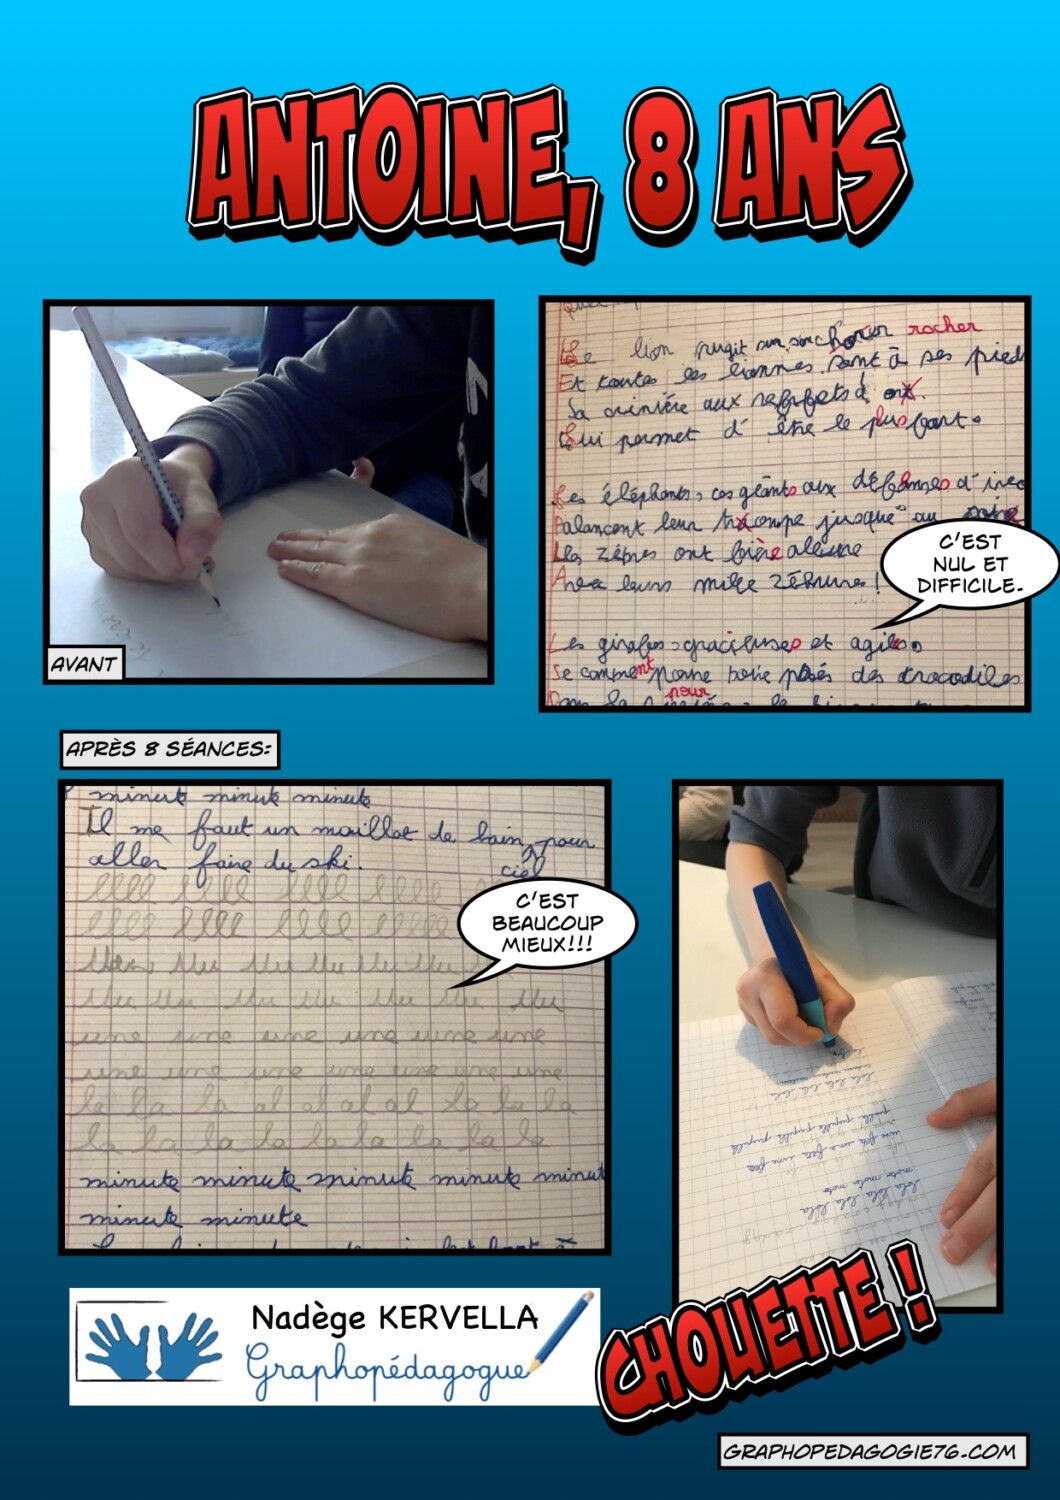 ANTOINE, 8 ANS
AVANT
Le lion rugit sur son rocher
Et toutes les lionnes sont à ses pieds
Sa crinière aux reffets d'
Lui permet d' être le plus fort.
Les éléphants, ces géants aux défenses d'
Balancent leur trompe jusque au
Les zèbres ont fière allure
Avec leurs mille zébrures!
Les girafes, gracieuses et agiles,
Se comment des crocodiles
pour
C'EST
NUL ET
DIFFICILE.
APRÈS 8 SÉANCES:
minute minute minute
Il me faut un maillot de bain pour
aller faire du ski.
ciel
llll llll llll llll
llll llll llll llll
une une une une une une
une une une une une une une
la la la al al al al la la la
la la la la la la la la la
minute minute minute minute minute
minute minute
C'EST
BEAUCOUP
MIEUX!!!
lola lola lola lola
une fée une fée une fée
moto moto moto
lola lola lola lola
Nadège KERVELLA
Graphopédagogue
CHOUETTE !
GRAPHOPEDAGOGIE76.COM